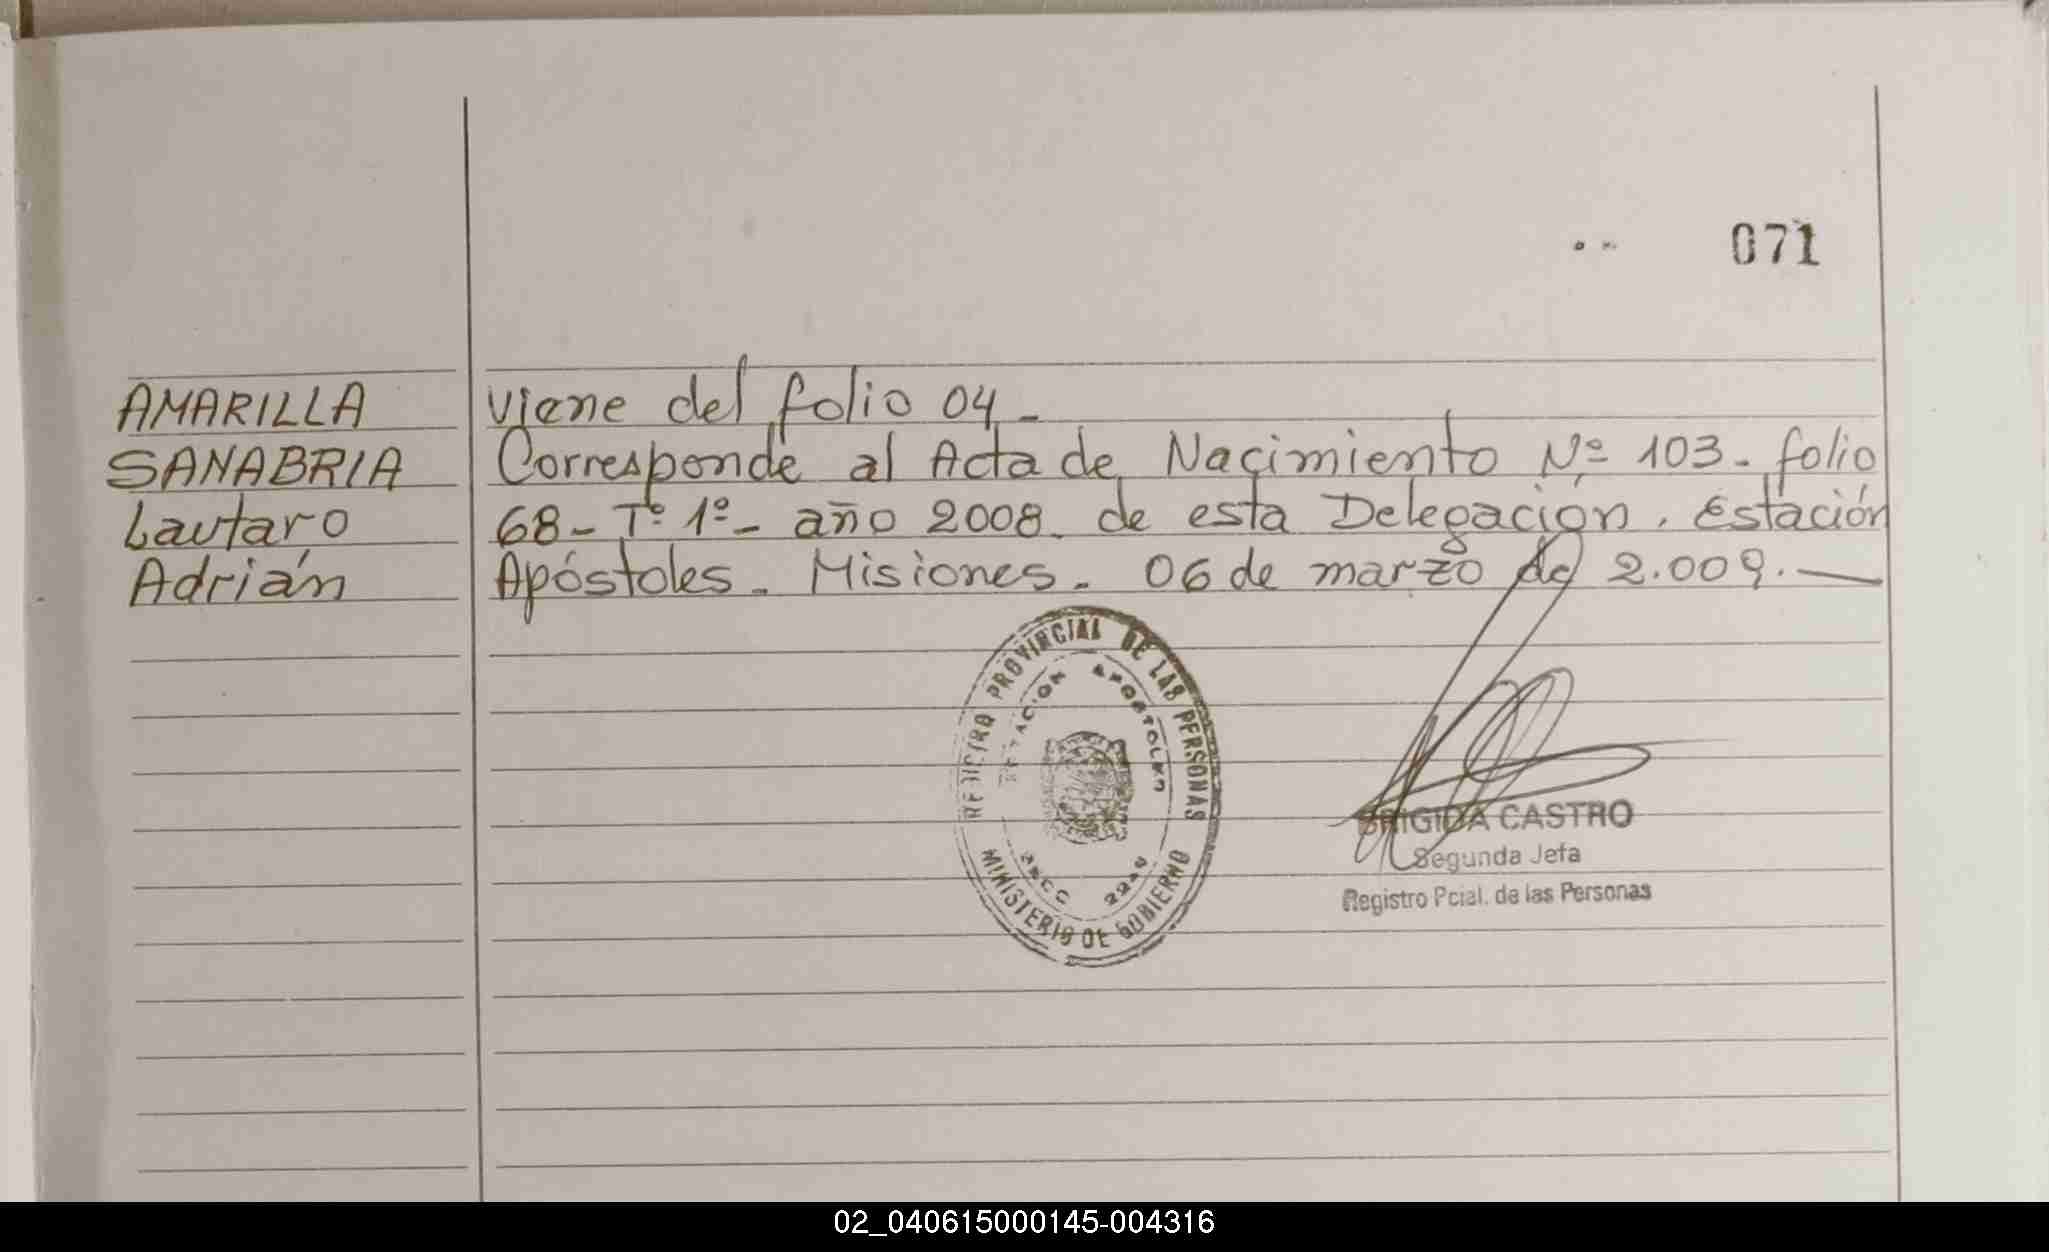 071
AMARILLA
SANABRIA
Lautaro
Adrián
Viene del folio 04.-
Corresponde al Acta de Nacimiento Nº 103- folio
68- Tº 1º- año 2008. de esta Delegación. Estación
Apóstoles. Misiones. 06 de marzo de 2.009.-
REGISTRO PROVINCIAL DE LAS PERSONAS
ESTACION APOSTOLES
MINISTERIO DE GOBIERNO
BRIGIDA CASTRO
Segunda Jefa
Registro Pcial. de las Personas
02_040615000145-004316